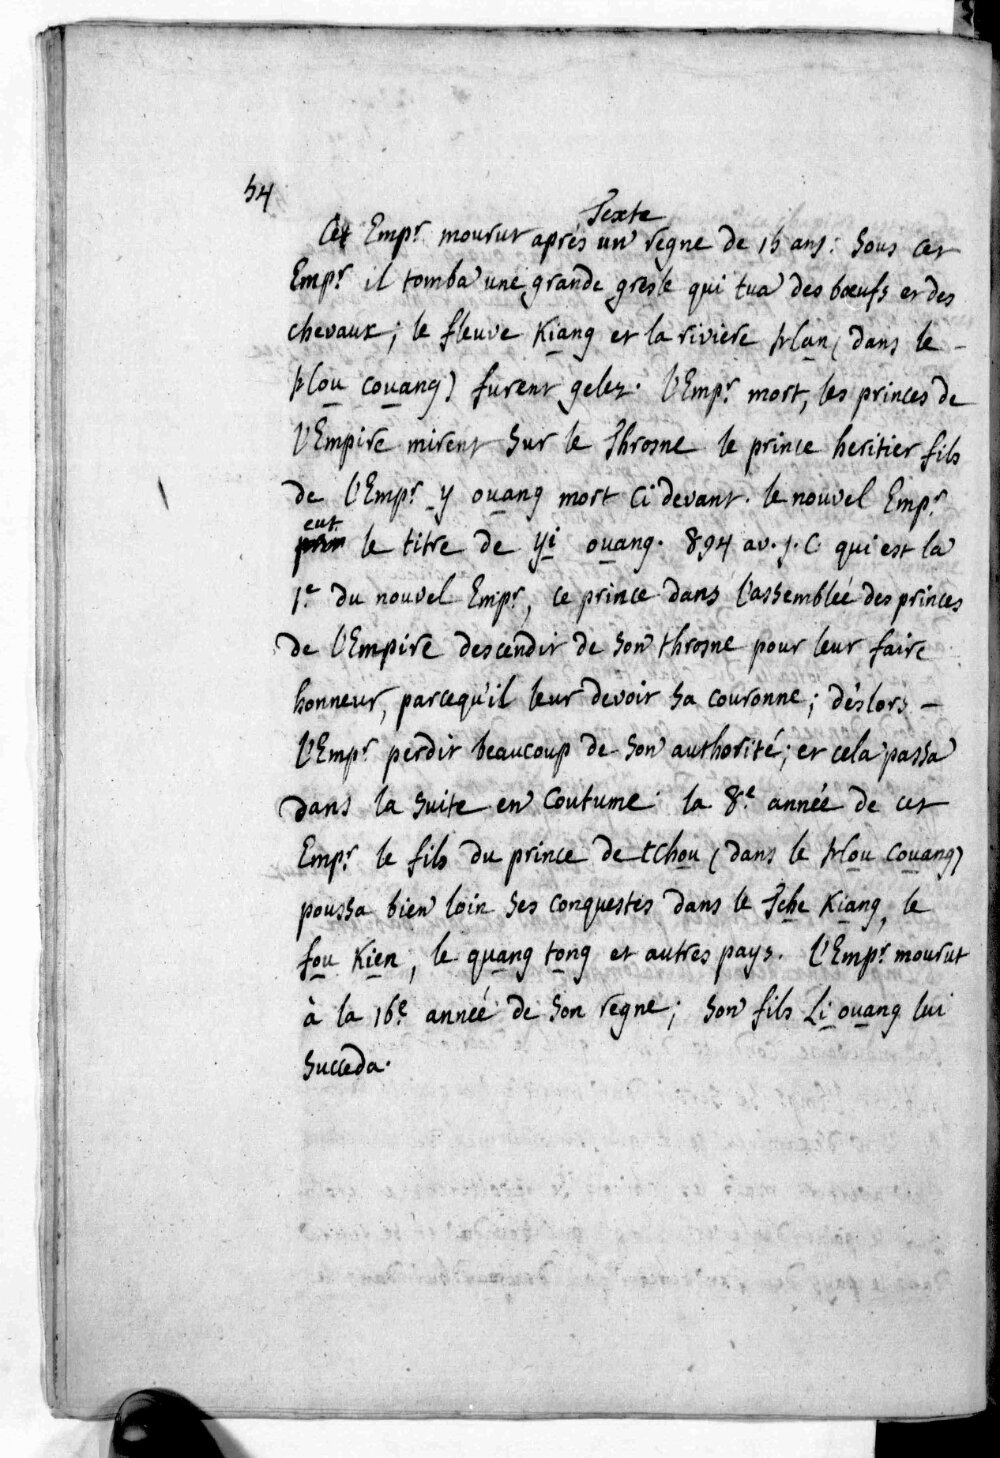 54
Texte
Cet Empr. mourut aprés un regne de 15 ans. Sous cet
Empr. il tomba une grande gresle qui tua des bœufs et des
chevaux; le fleuve Kiang et la riviere Han (dans le
Hou couang) furent gelez. l'Empr. mort, les princes de
l'Empire mirent sur le Throsne le prince heritier fils
de l'Empr. y ouang mort cidevant. le nouvel Empr.
eut
le titre de yi ouang. 894 av. j. C. qui est la
1.e du nouvel Empr., ce prince dans l'assemblée des princes
de l'Empire descendit de son throsne pour leur faire
honneur, parcequ'il leur devoit sa couronne; déslors
l'Empr. perdit beaucoup de son authorité; et cela passa
dans la suite en coutume. la 8.e année de cet
Empr. le fils du prince de tchou (dans le Hou couang)
poussa bien loin ses conquestes dans le Tche Kiang, le
fou Kien, le quang tong et autres pays. l'Empr. mourut
à la 16.e année de son regne; son fils Li ouang lui
succeda.